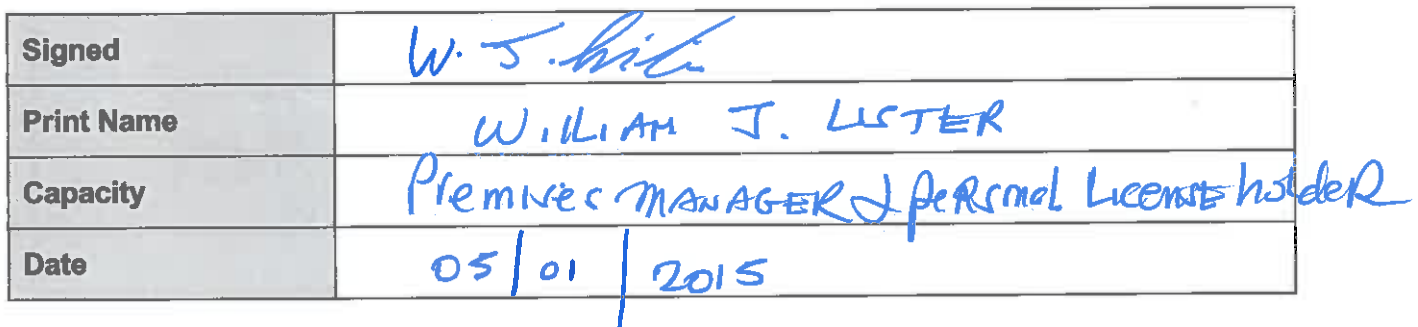 Signed W. J. Lister
Print Name WILLIAM J. LISTER
Capacity Premises MANAGER & PERSonal License holdeR
Date 05/01/2015